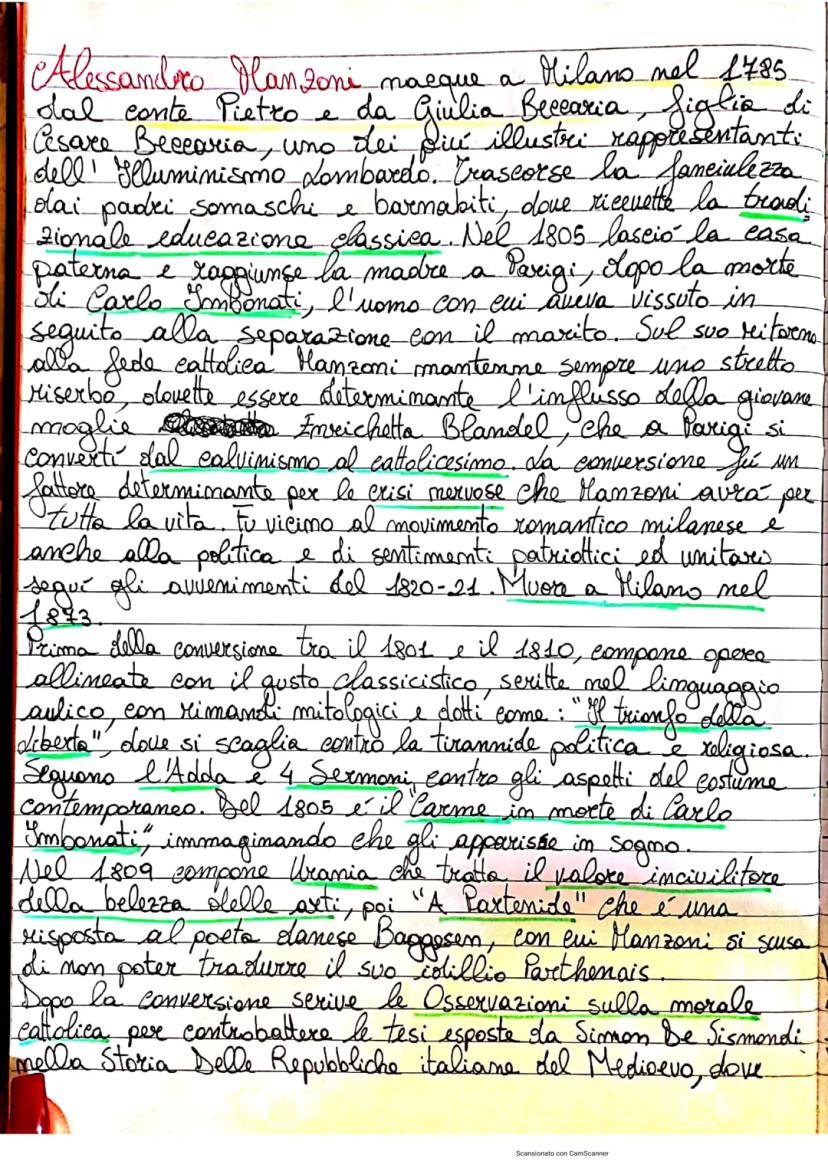 Alessandro Manzoni nacque a Milano nel 1785
dal conte Pietro e da Giulia Beccaria, figlia di
Cesare Beccaria, uno dei piú illustri rappresentanti
dell' Illuminismo Lombardo. Trascorse la fanciulezza
dai padri somaschi e barnabiti, dove ricevette la tradi
zionale educazione classica. Nel 1805 lasció la casa
paterna e raggiunse la madre a Parigi, dopo la morte
di Carlo Imbonati, l'uomo con cui aveva vissuto in
seguito alla separazione con il marito. Sul suo ritorno
alla fede cattolica Manzoni mantenne sempre uno stretto
riserbo, dovette essere determinante l'influsso della giovane
moglie Enrichetta Blandel, che a Parigi si
convertí dal calvinismo al cattolicesimo. La conversione fú un
fattore determinante per le crisi nervose che Manzoni avrá per
tutta la vita. Fu vicino al movimento romantico milanese e
anche alla politica e di sentimenti patriottici ed unitari
seguí gli avvenimenti del 1820-21. Muore a Milano nel
1873.
Prima della conversione tra il 1801 e il 1810, compone opere
allineate con il gusto classicistico, scritte nel linguaggio
aulico, con rimandi mitologici e dotti come: "Il trionfo della
libertá", dove si scaglia contro la tirannide politica e religiosa.
Seguono l'Adda e 4 Sermoni, contro gli aspetti del costume
contemporaneo. Del 1805 é il "Carme in morte di Carlo
Imbonati", immaginando che gli apparisse in sogno.
Nel 1809 compone Urania che tratta il valore incivilitore
della belezza delle arti, poi "A Partenide" che é una
risposta al poeta danese Baggesen, con cui Manzoni si scusa
di non poter tradurre il suo idillio Parthenais.
Dopo la conversione scrive le Osservazioni sulla morale
cattolica per controbattere le tesi esposte da Simon De Sismondi
nella Storia Delle Repubbliche italiane del Medioevo, dove
Scansionato con CamScanner